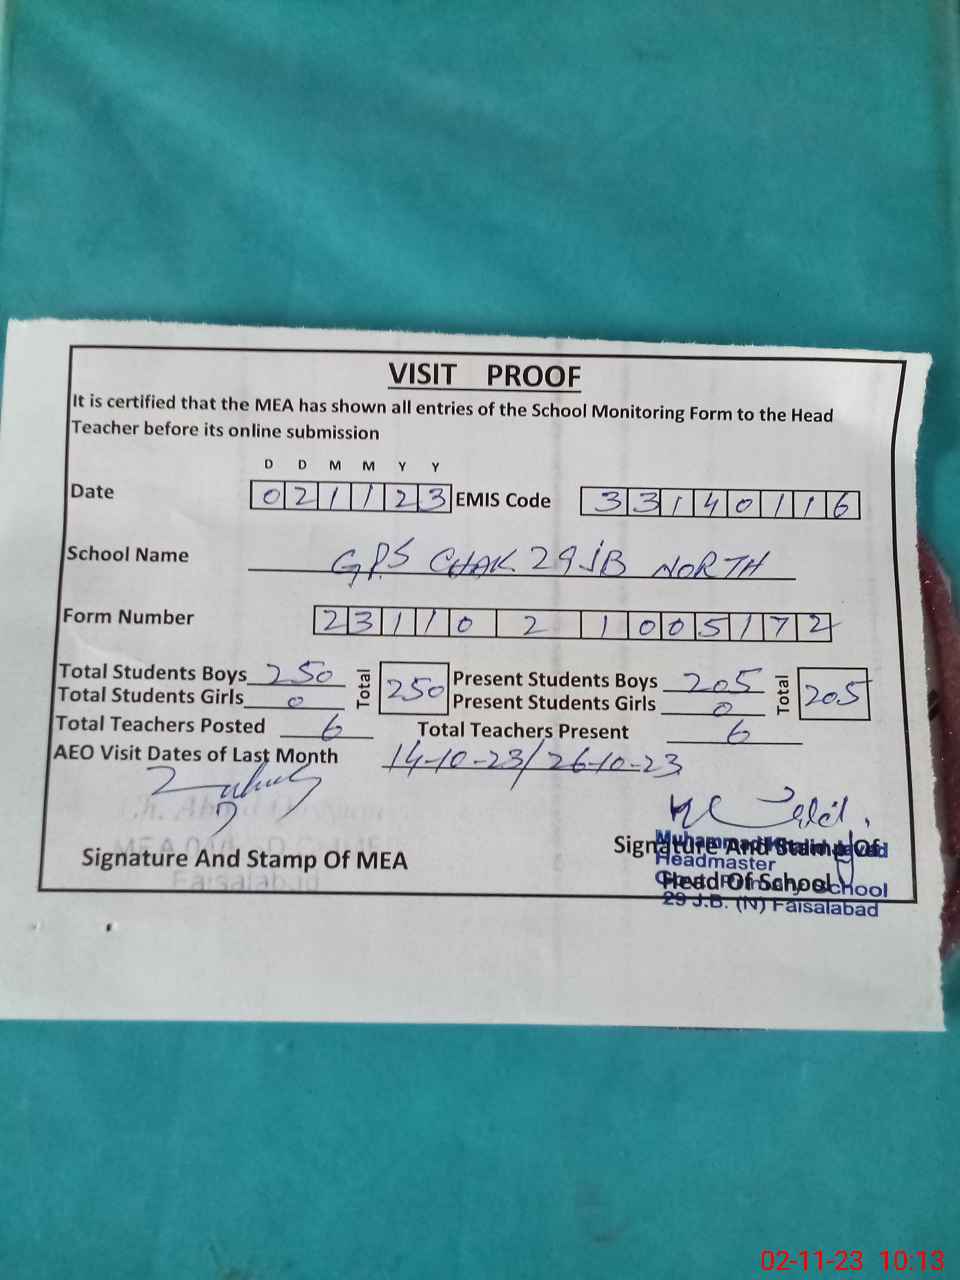 VISIT PROOF
It is certified that the MEA has shown all entries of the School Monitoring Form to the Head
Teacher before its online submission
D D M M Y Y
Date 0 2 1 1 2 3 EMIS Code 3 3 1 4 0 1 1 6
School Name GPS CHAK 29 JB NORTH
Form Number 2 3 1 1 0 2 1 0 0 5 1 7 2
Total Students Boys 250 Total 250 Present Students Boys 205 Total 205
Total Students Girls 0 Present Students Girls 0
Total Teachers Posted 6 Total Teachers Present 6
AEO Visit Dates of Last Month 14-10-23/26-10-23
Signature And Stamp Of MEA
Faisalabad
Signature And Stamp Of
Head Of School
Muhammad
Headmaster
Govt. Primary School
29 J.B. (N) Faisalabad
02-11-23 10:13